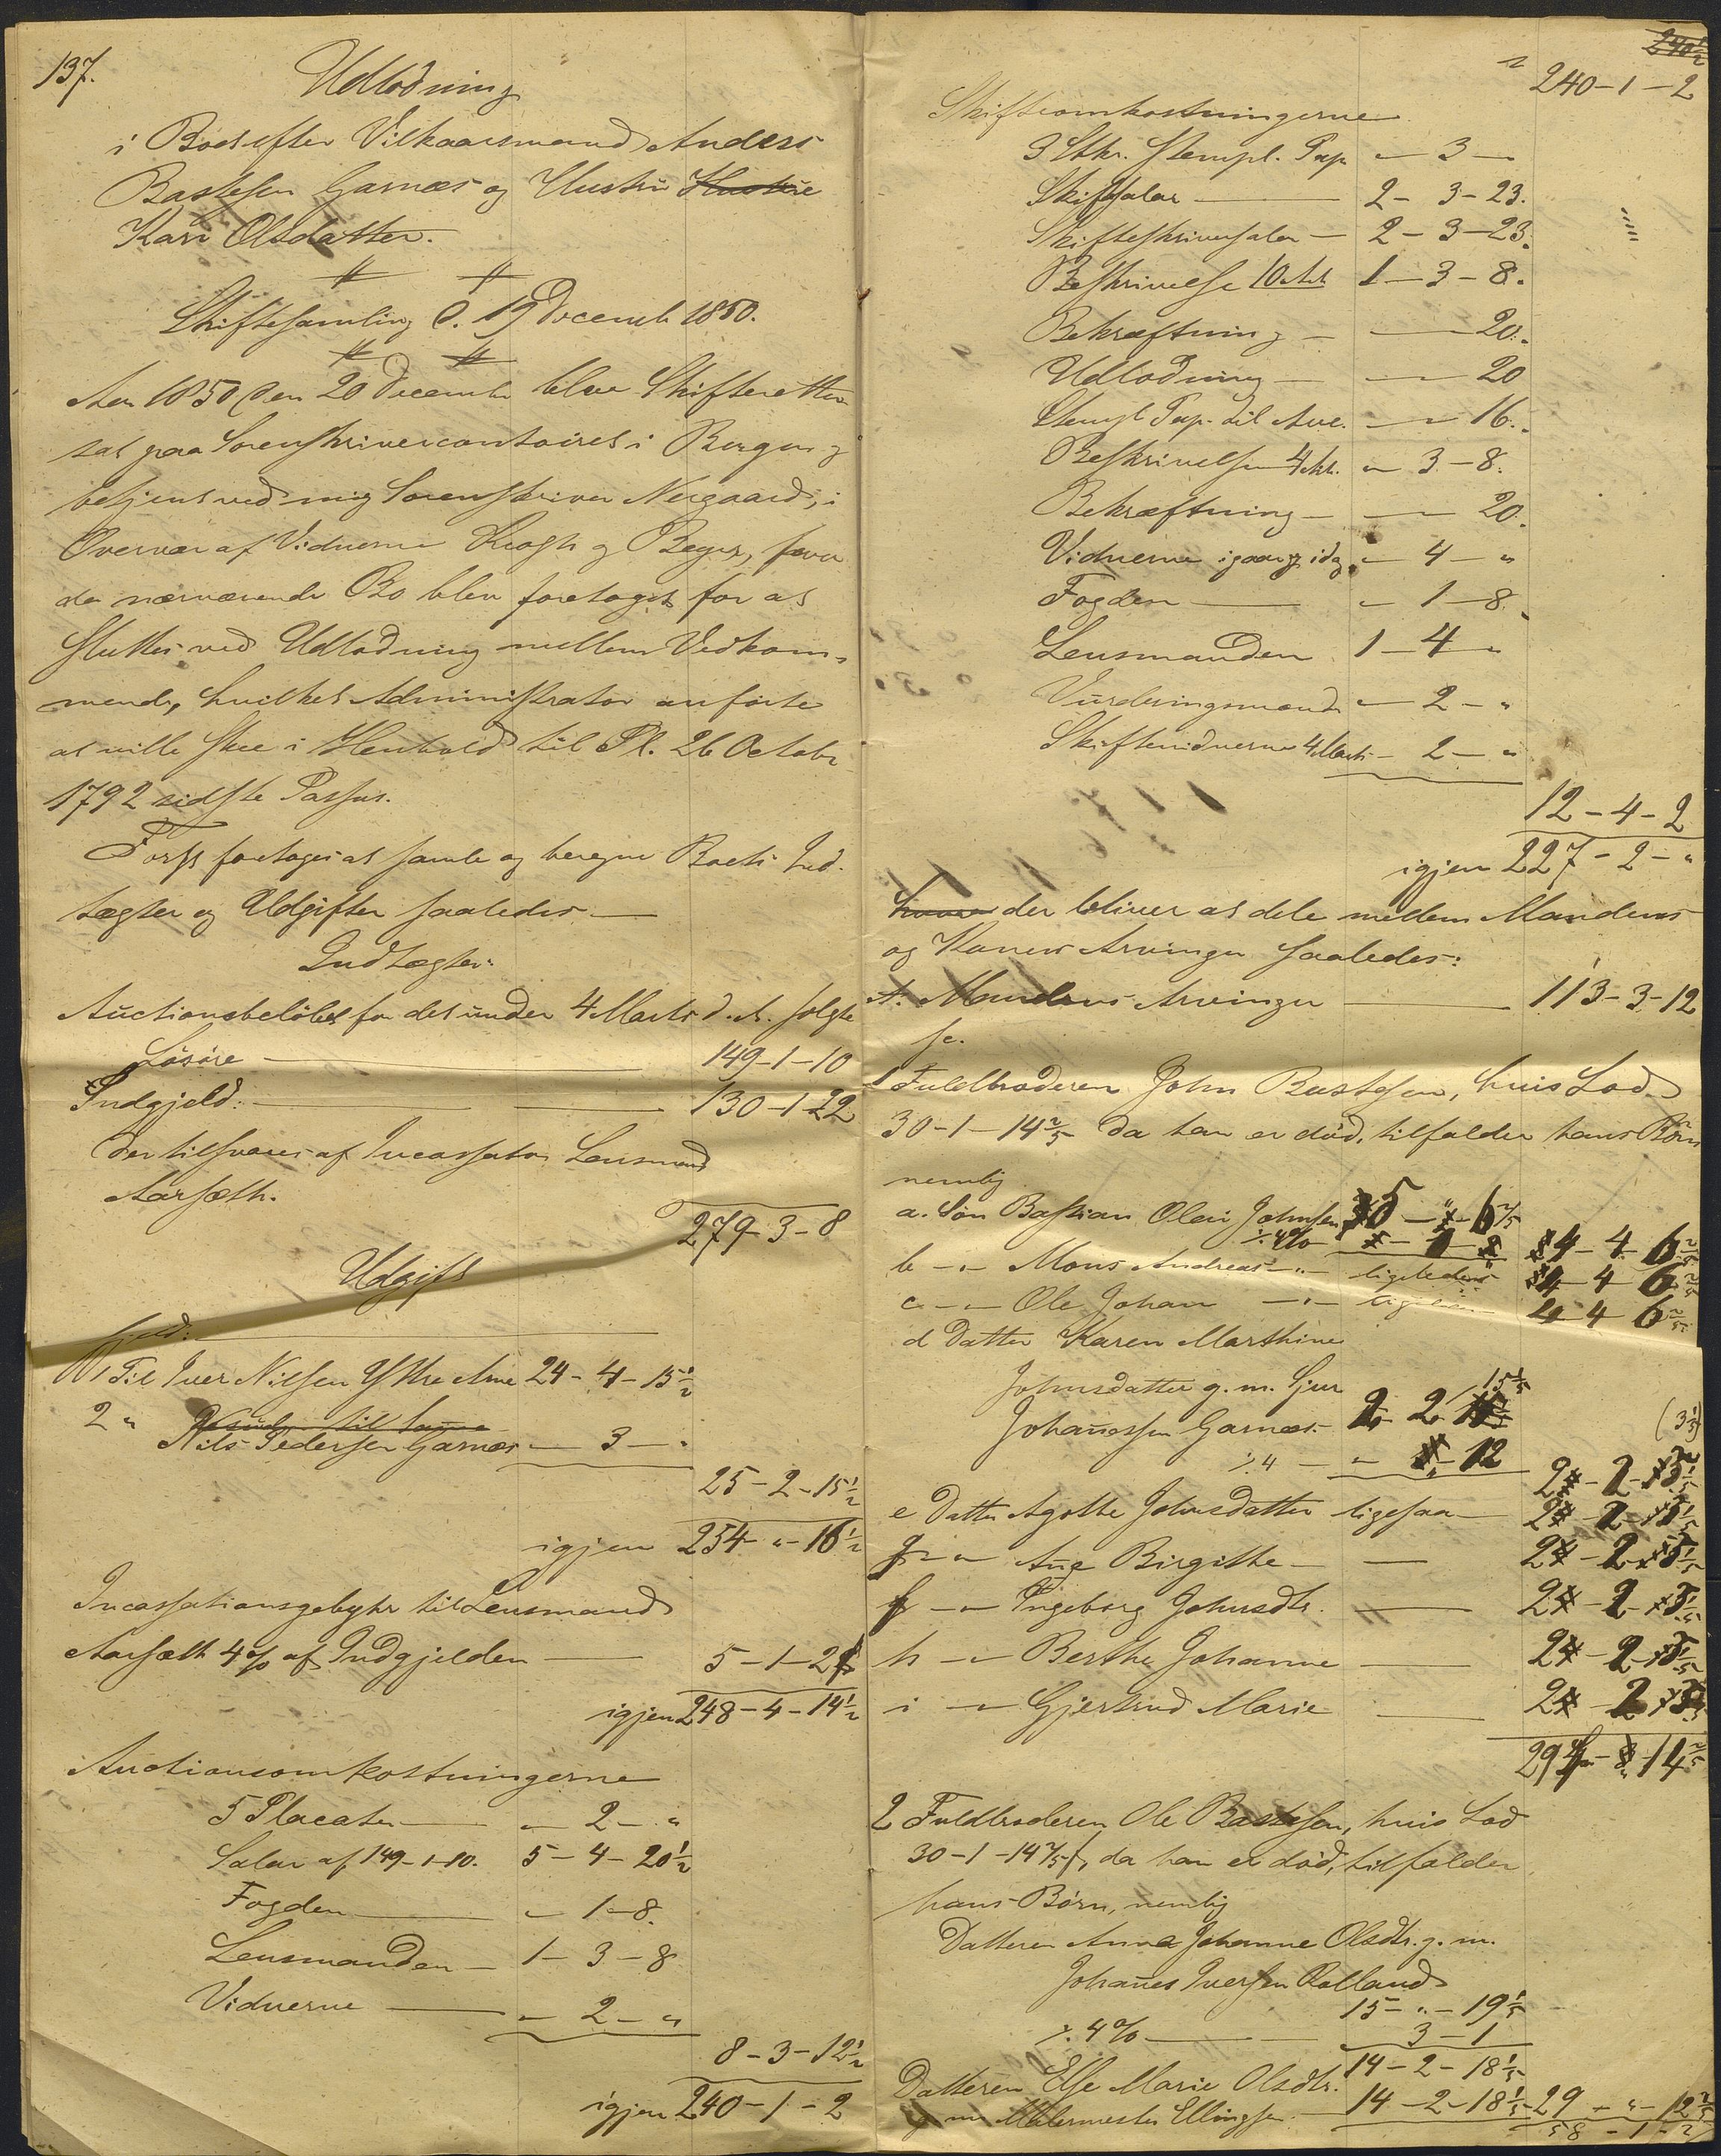 137.
Udlodning
i Boet efter Vilkaarsmand Anders
Bastesen Garnæs og Hustru Hustrue
Kari Olsdatter.
Skiftesamling d. 19 Decemb 1850.
Aar 1850 den 20 Decembr blev Skifteretten
sat paa Sorenskrivercontoiret i Bergen og
betjent ved mig Sorenskriver Nergaard, i
Overvær af Vidnerne Krogh og Beyer, hvor
da nærværende Bo blev foretaget for at
sluttes ved Udlodning mellem Vedkom-
mende, hvilket Administrator anførte
at ville skee i Henhold til Pl. 26 Octobr
1792 sidste Passus.
Først foretoges at samle og beregne Boets Ind-
tægter og Udgifter saaledes —
Indtægter:
Auctionsbeløbet for det under 4 Marts d. A. solgte
Løsøre — 149-1-10
Indgjeld: — 130-1-22
der tilsvares af Incassator Lensmand
Aarsæth.
279-3-8
Udgift
Gjeld:
1 Til Iver Nilsen Ythre Arne 24-4-15½
2 "
Nils Pedersen Garnæs — 3 — "
25-2-15½
igjen 254-"-16½
Incassationsgebyhr til Lensmand
Aarsæth 4% af Indgjelden — 5-1-2
igjen 248-4-14½
Auctionsomkostningerne
5 Placater — " 2 - "
Salær af 149-1-10. 5-4-20½
Fogden — " 1-8.
Lensmanden — 1-3-8
Vidnerne — " 2 - "
8-3-12½
igjen 240-1-2
240½
240-1-2
Skifteomkostningerne
3 Stkr. Stempl. Pap — 3 —
Skiftsalær — 2-3-23.
Skifteskriversalær — 2-3-23.
Beskrivelse 10 Ark 1-3-8.
Bekræftning — 20.
Udlodning — 20
Stempl Pap. til Aue. — 16.
Beskrivelsen 4 Ark. " 3-8.
Bekræftning — 20.
Vidnerne igaar og idag " 4 - "
Fogden — " 1-8.
Lensmanden 1-4 "
Vurderingsmænd " 2 - "
Skiftevidnerne 4 Marts - 2 - "
12-4-2
igjen 227-2-"
hvorer der bliver at dele mellem Mandens
og Konens Arvinger saaledes:
A. Mandens Arvinger — 113-3-12
sc.
1 Fuldbroderen John Bastesen, hvis Lod
30-1-14⅖ da han er død, tilfalder hans Børn
nemlig
a. Søn Bastian Olai Johnsen 5-"-6⅖
÷ 4% 4-4-6⅖
b — " Mons Andreas — " — ligeledes 4-4-6⅖
c — " Ole Johan — " — ligeledes 4-4-6⅖
d Datter Karen Marthine
Johnsdatter g. m. Gjer
Johannessen Garnæs. 2 2 15⅕
(3⅕)
÷ 4 — " 12
e Datter Agothe Johnsdatter ligesaa — 2-2-3⅕
f — " Ane Birgitte — 2-2-3⅕
g — " Ingeborg Johnsdtr. — 2-2-3⅕
h — " Berthe Johanne — 2-2-3⅕
i — " Gjertrud Marie — 2-2-3⅕
29 14⅖
2 Fuldbroderen Ole Bastesen, hvis Lod
30-1-14⅖, da han er død, tilfalder
hans Børn, nemlig
Datteren Anna Johanne Olsdtr. g. m.
Johanes Iversen Rolland
15-"-19⅕
÷ 4% — 3-1
14-2-18⅕
Datteren Else Marie Olsdtr.
g. m. Malermester Ellingsen. 14-2-18⅕ 29-"-12⅖
58-1-2